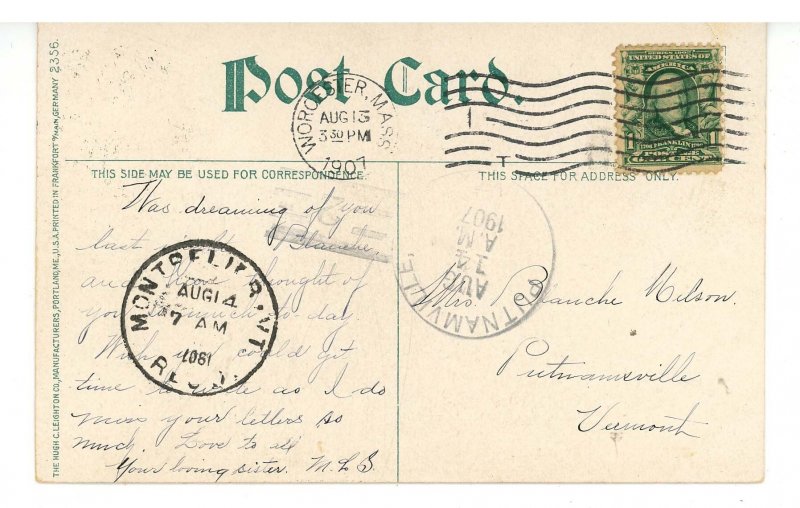 Post Card.
WORCESTER, MASS.
AUG 13
3 30 PM
1907
1
T
SERIES 1902
UNITED STATES OF
AMERICA
1706 FRANKLIN 1790
POSTAGE
1 ONE CENT 1
THIS SIDE MAY BE USED FOR CORRESPONDENCE.
THIS SPACE FOR ADDRESS ONLY.
THE HUGH C. LEIGHTON CO., MANUFACTURERS, PORTLAND, ME., U.S.A. PRINTED IN FRANKFORT o/MAIN, GERMANY 2356.
Was dreaming of you
last night Blanche,
and have thought of
you so much to day.
Wish you could get
time to write as I do
miss your letters so
much. Love to all
Your loving sister. M. L. S
MONTPELIER, VT.
AUG 14
7 AM
1907
REC'D.
PUTNAMVILLE,
AUG
14
A.M.
1907
Mrs. Blanche Nelson.
Putnamsville
Vermont